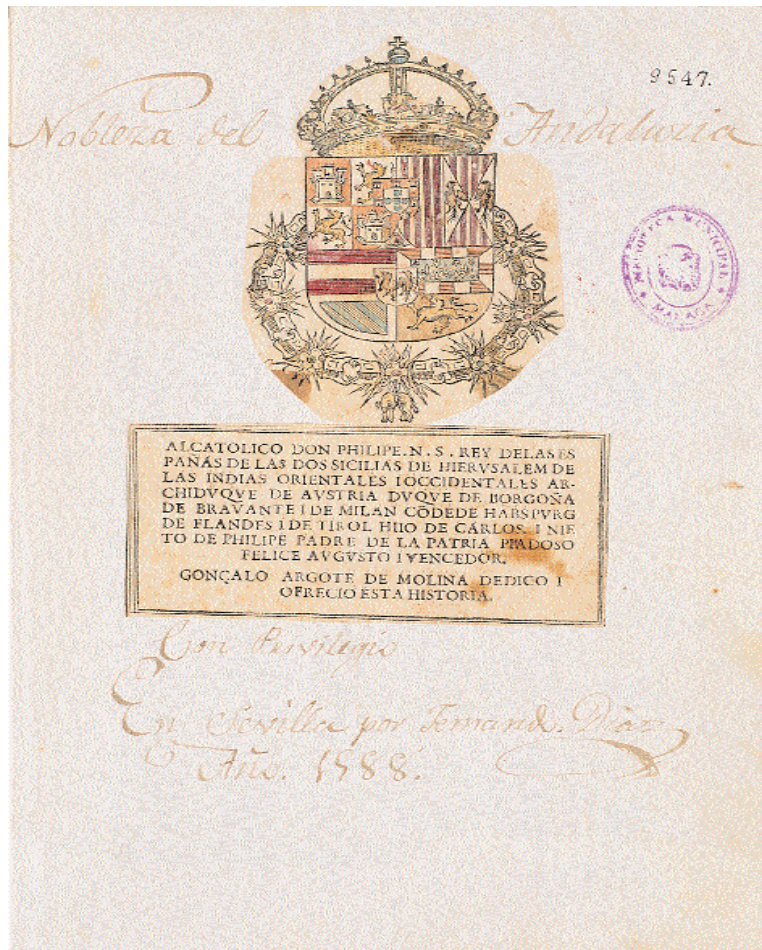 9547.
Nobleza del Andaluzia
BIBLIOTECA MUNICIPAL
MALAGA
AL CATOLICO DON PHILIPE. N. S. REY DELAS ES
PAÑAS DE LAS DOS SICILIAS DE HIERVSALEM DE
LAS INDIAS ORIENTALES I OCCIDENTALES AR-
CHIDVQVE DE AVSTRIA DVQVE DE BORGOÑA
DE BRAVANTE I DE MILAN CÕDE DE HABSPVRG
DE FLANDES I DE TIROL HIIO DE CARLOS. I NIE
TO DE PHILIPE PADRE DE LA PATRIA PIADOSO
FELICE AVGVSTO I VENCEDOR.
GONÇALO ARGOTE DE MOLINA DEDICO I
OFRECIO ESTA HISTORIA.
Con Previlegio
En Sevilla por Fernand. Diaz
Año. 1588.